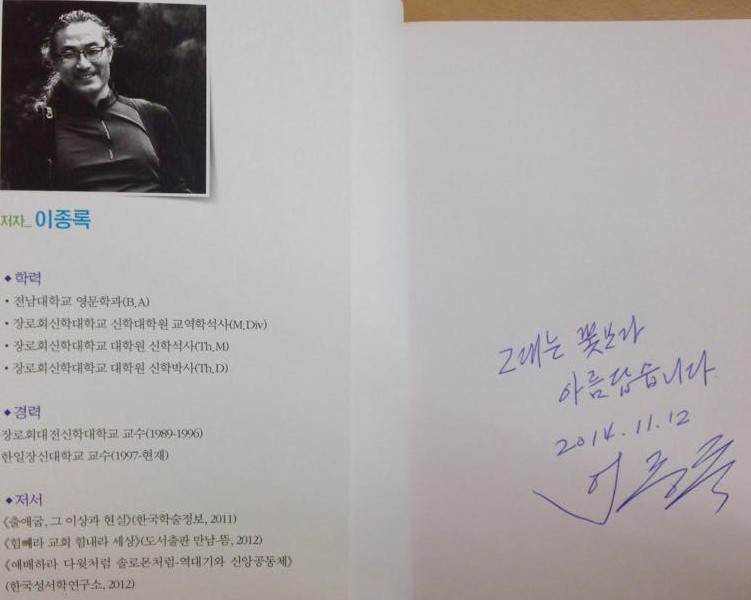 저자_ 이종록
◆학력
• 전남대학교 영문학과(B.A)
• 장로회신학대학교 신학대학원 교역학석사(M.Div)
• 장로회신학대학교 대학원 신학석사(Th.M)
• 장로회신학대학교 대학원 신학박사(Th.D)
◆경력
장로회대전신학대학교 교수(1989-1996)
한일장신대학교 교수(1997-현재)
◆저서
《출애굽, 그 이상과 현실》(한국학술정보, 2011)
《힘빼라 교회 힘내라 세상》(도서출판 만남-뜸, 2012)
《예배하라 다윗처럼 솔로몬처럼-역대기와 신앙공동체》
(한국성서학연구소, 2012)
그대는 꽃보다
아름답습니다.
2014.11.12
이종록